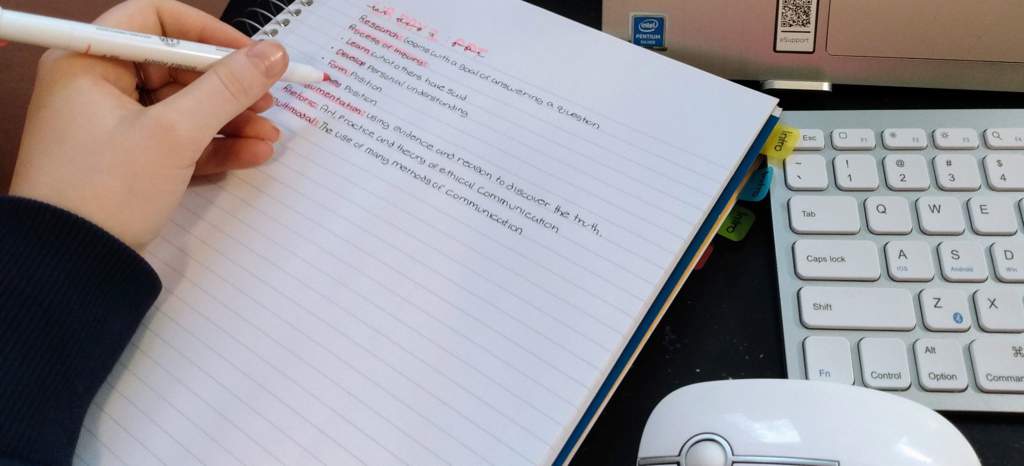 Research: Begins with a goal of answering a question
Process of Inquiry:
· Learn what others have said
· Develop Personal understanding
· Form Position
Position
using evidence and reason to discover the truth.
Rhetoric: Art, Practice and theory of ethical communication
The use of many methods of communication
Intro
intel
PENTIUM
SILVER
eSupport
Esc
F1
F2
F3
F4
~
`
!
1
@
2
#
3
$
4
Tab
Q
W
E
Caps lock
A
iOS
S
Android
D
Win
Shift
Z
X
Fn
Control
Alt
Option
⌘